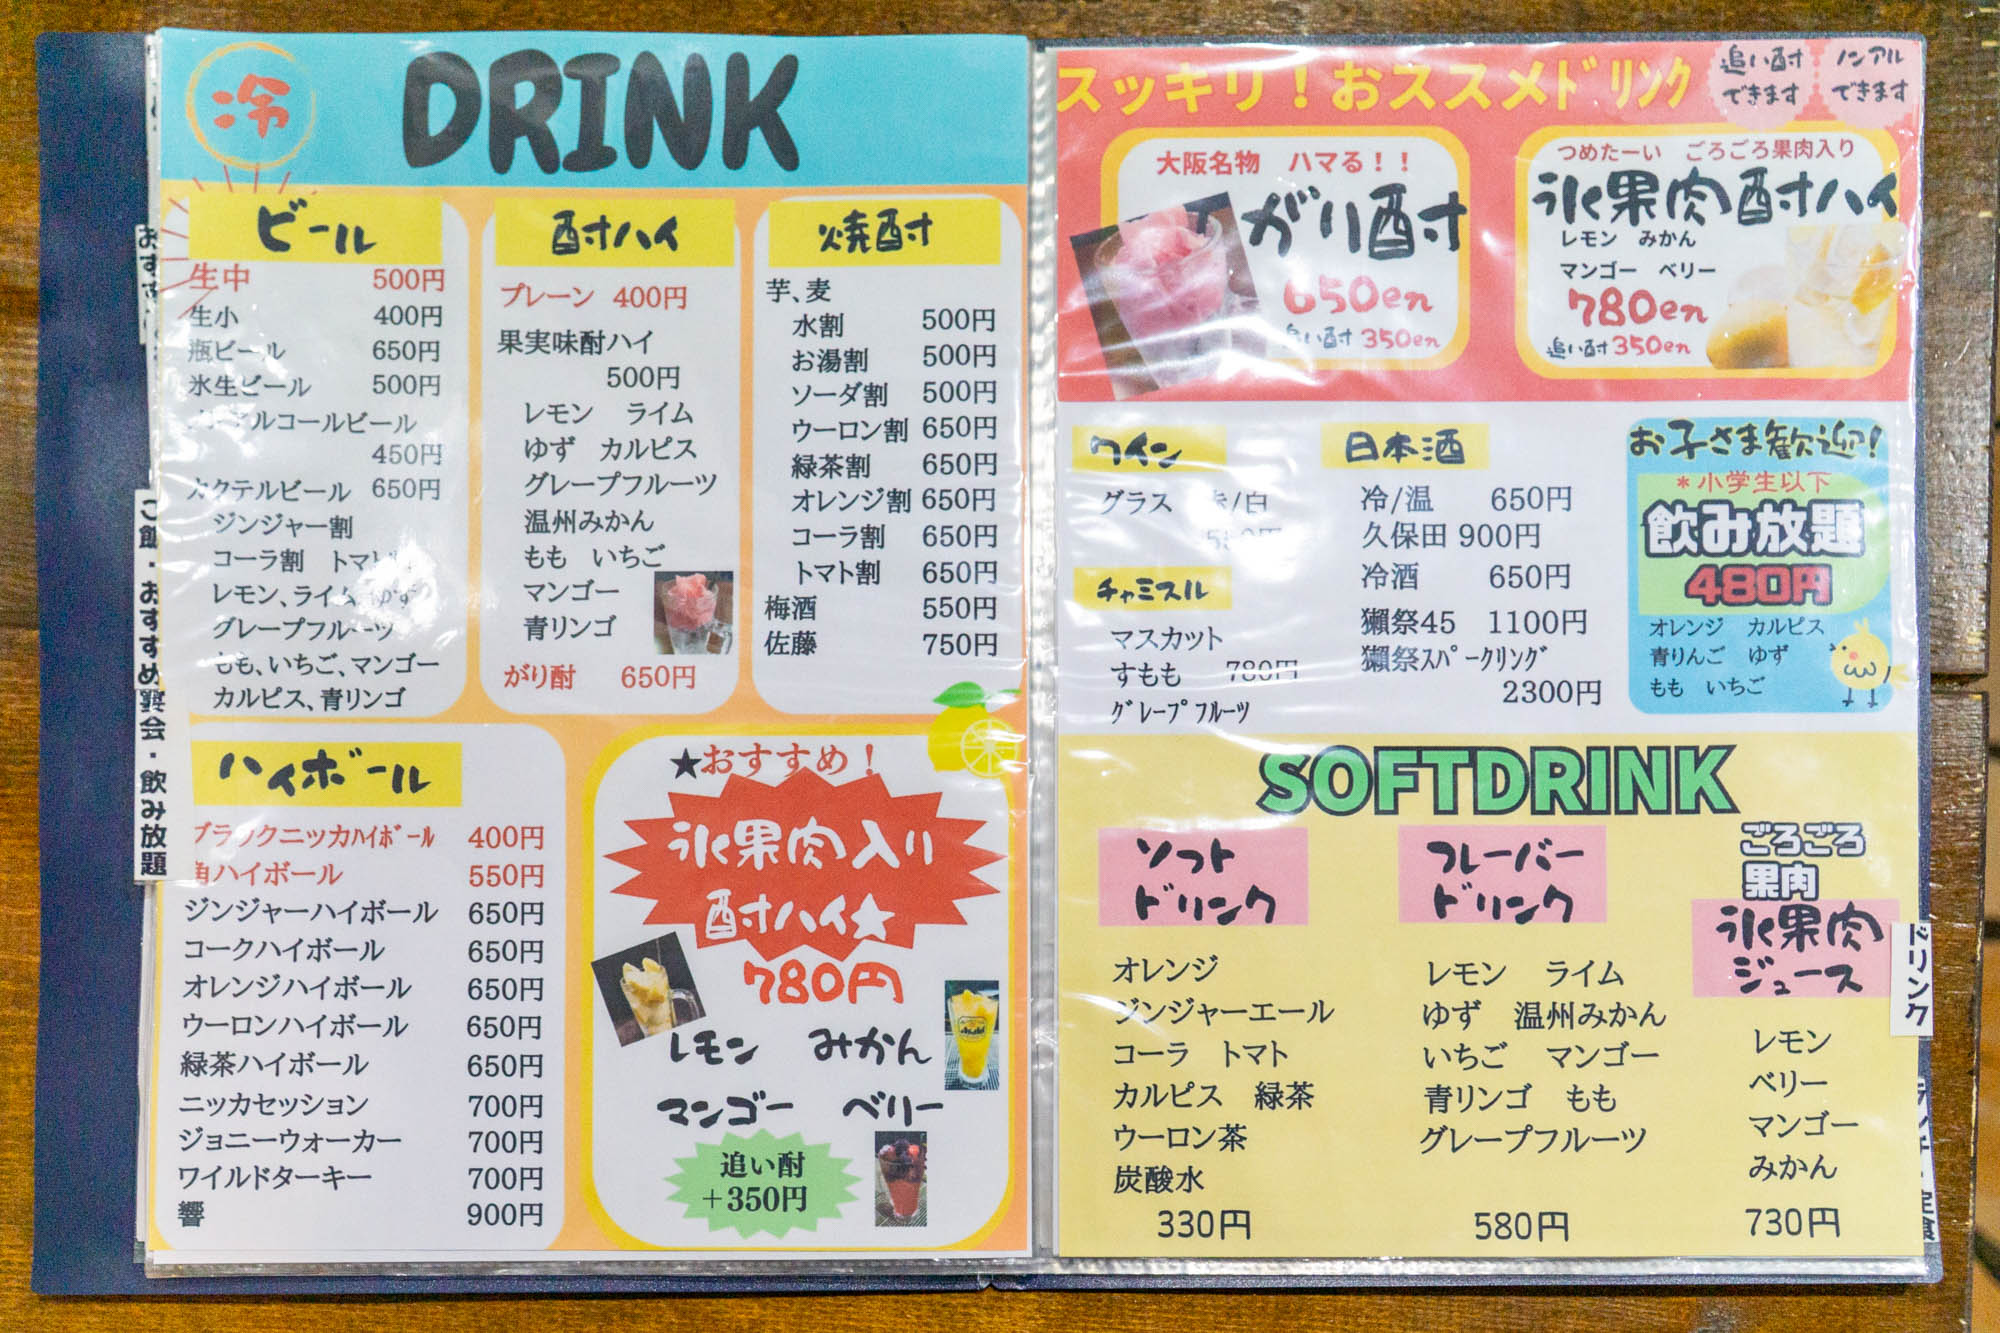 冷
DRINK
ビール
生中 500円
生小 400円
瓶ビール 650円
氷生ビール 500円
ノンアルコールビール
450円
カクテルビール 650円
ジンジャー割
コーラ割 トマト
レモン、ライム、ゆず
グレープフルーツ
もも、いちご、マンゴー
カルピス、青リンゴ
酎ハイ
プレーン 400円
果実味酎ハイ
500円
レモン ライム
ゆず カルピス
グレープフルーツ
温州みかん
もも いちご
マンゴー
青リンゴ
がり酎 650円
焼酎
芋、麦
水割 500円
お湯割 500円
ソーダ割 500円
ウーロン割 650円
緑茶割 650円
オレンジ割 650円
コーラ割 650円
トマト割 650円
梅酒 550円
佐藤 750円
ハイボール
ブラックニッカハイボール 400円
角ハイボール 550円
ジンジャーハイボール 650円
コークハイボール 650円
オレンジハイボール 650円
ウーロンハイボール 650円
緑茶ハイボール 650円
ニッカセッション 700円
ジョニーウォーカー 700円
ワイルドターキー 700円
響 900円
★おすすめ！
氷果肉入り
酎ハイ★
780円
レモン みかん
マンゴー ベリー
追い酎
＋350円
スッキリ！おススメドリンク
追い酎
できます
ノンアル
できます
大阪名物 ハマる！！
がり酎
650en
追い酎 350en
つめたーい ごろごろ果肉入り
氷果肉酎ハイ
レモン みかん
マンゴー ベリー
780en
追い酎 350en
ワイン
グラス 赤/白
チャミスル
マスカット
すもも 780円
グレープフルーツ
日本酒
冷/温 650円
久保田 900円
冷酒 650円
獺祭45 1100円
獺祭スパークリング
2300円
お子さま歓迎！
＊小学生以下
飲み放題
480円
オレンジ カルピス
青りんご ゆず
もも いちご
SOFTDRINK
ソフト
ドリンク
オレンジ
ジンジャーエール
コーラ トマト
カルピス 緑茶
ウーロン茶
炭酸水
330円
フレーバー
ドリンク
レモン ライム
ゆず 温州みかん
いちご マンゴー
青リンゴ もも
グレープフルーツ
580円
ごろごろ
果肉
氷果肉
ジュース
レモン
ベリー
マンゴー
みかん
730円
ドリンク
ご飯・おすすめ
宴会・飲み放題